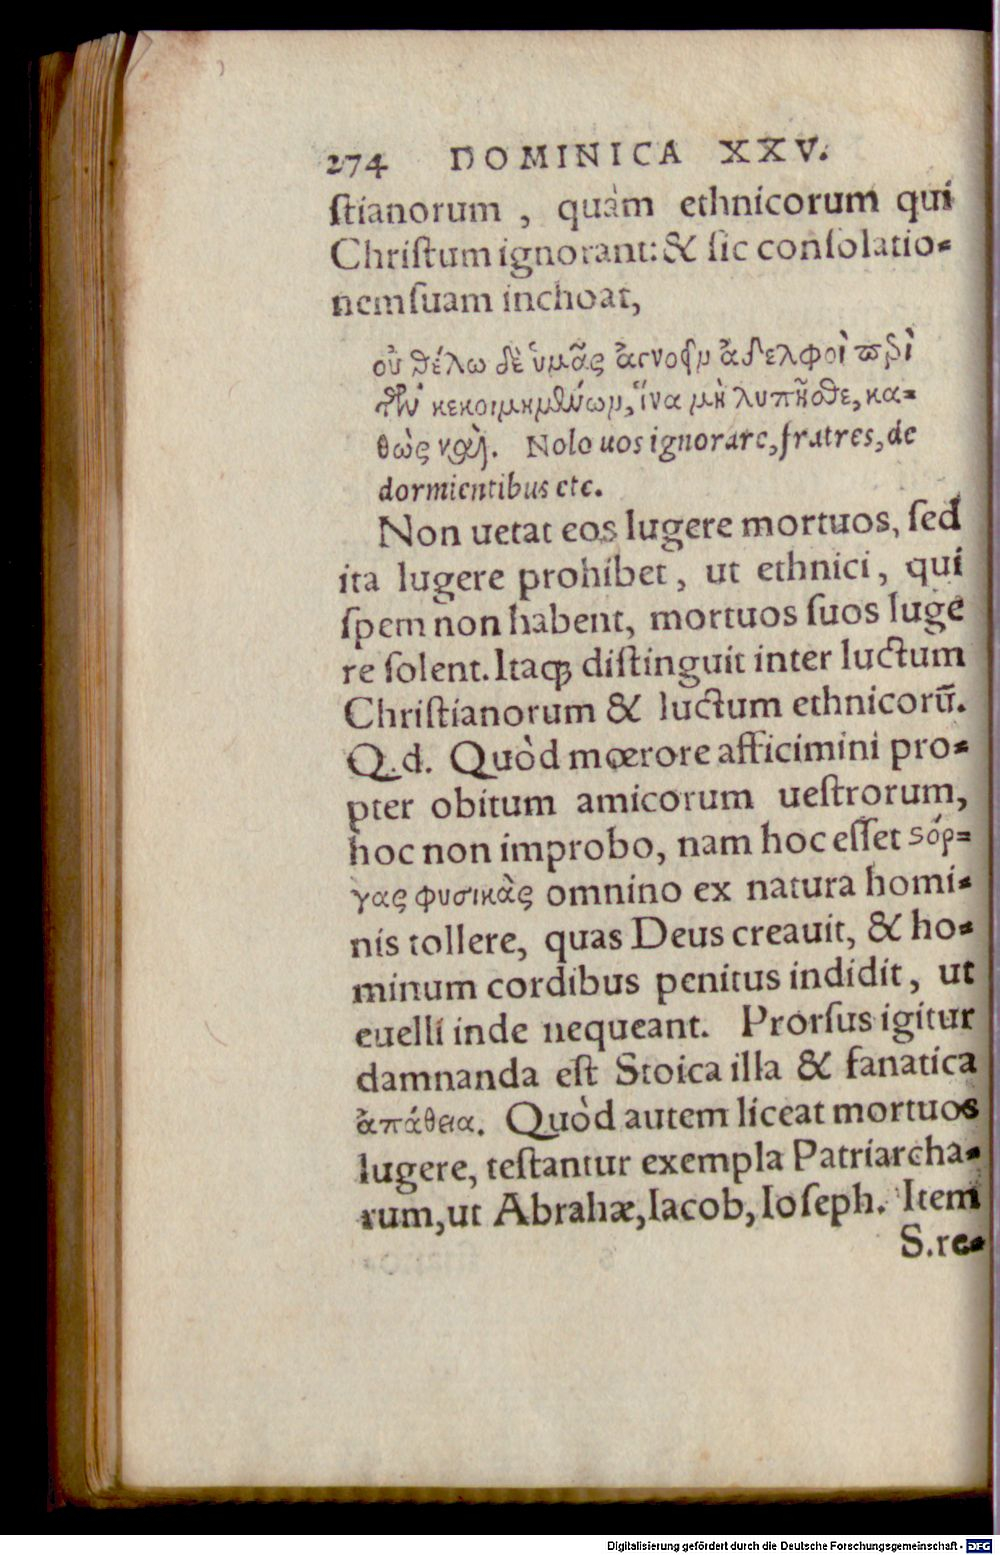 274 DOMINICA XXV.
ſtianorum , quàm ethnicorum qui
Chriſtum ignorant: & ſic conſolatio-
nem ſuam inchoat,
οὐ θέλω δὲ ὑμᾶς ἀγνοεῖν ἀδελφοὶ περὶ
τῶν κεκοιμημένων, ἵνα μὴ λυπῆσθε, κα-
θὼς καὶ. Nolo uos ignorare, fratres, de
dormientibus etc.
Non uetat eos lugere mortuos, ſed
ita lugere prohibet, ut ethnici, qui
ſpem non habent, mortuos ſuos luge
re ſolent. Itaq; diſtinguit inter luctum
Chriſtianorum & luctum ethnicorū.
Q.d. Quòd mœrore afficimini pro-
pter obitum amicorum ueſtrorum,
hoc non improbo, nam hoc eſſet σόρ-
γας φυσικὰς omnino ex natura homi-
nis tollere, quas Deus creauit, & ho-
minum cordibus penitus indidit, ut
euelli inde nequeant. Prorſus igitur
damnanda eſt Stoica illa & fanatica
ἀπάθεια. Quòd autem liceat mortuos
lugere, teſtantur exempla Patriarcha-
rum, ut Abrahæ, Iacob, Ioſeph. Item
S. re-
Digitalisierung gefördert durch die Deutsche Forschungsgemeinschaft - DFG